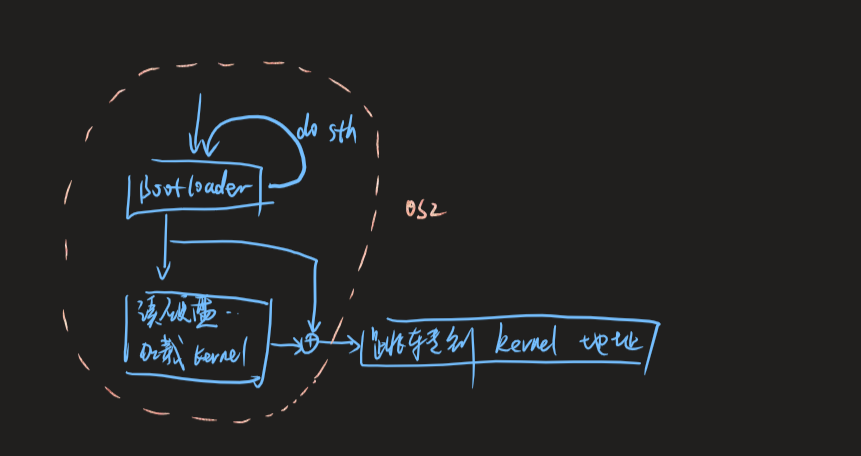 do sth
Bootloader
OS2
读硬盘..
加载 kernel
跳转到 kernel 地址